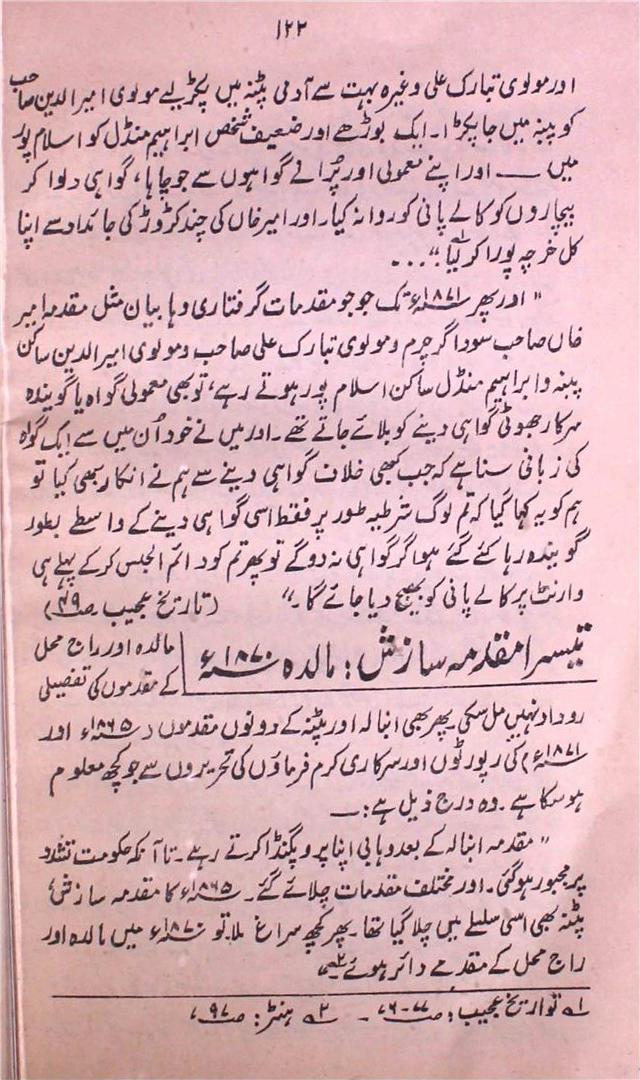 ۱۲۲
اور مولوی تبارک علی وغیرہ بہت سے آدمی پٹنہ میں پکڑ لیے مولوی امیر الدین صاحب
کو پٹنہ میں جا پکڑا۔ ایک بوڑھے اور ضعیف شخص ابراہیم منڈل کو اسلام پور
میں —— اور اپنے معمولی اور پرانے گواہوں سے جو چاہا، گواہی دلوا کر
بیچاروں کو کالے پانی کو روانہ کیا۔ اور امیر خاں کی چند کروڑ کی جائداد سے اپنا
کل خرچہ پورا کر لیا۔" ...
" اور پھر ۱۸۷۱ء تک جو جو مقدمات گرفتاری وہابیان مثل مقدمہ امیر
خاں صاحب سوداگر چرم و مولوی تبارک علی صاحب و مولوی امیر الدین ساکن
پٹنہ و ابراہیم منڈل ساکن اسلام پور ہوتے رہے، تو بھی معمولی گواہ یا گوبندہ
سرکار جھوٹی گواہی دینے کو بلائے جاتے تھے۔ اور میں نے خود اُن میں سے ایک گواہ
کی زبانی سنا ہے کہ جب کبھی خلاف گواہی دینے سے ہم نے انکار بھی کیا تو
ہم کو یہ کہا گیا کہ تم لوگ شرطیہ طور پر فقط اسی گواہی دینے کے واسطے بطور
گوبندہ رہا کئے گئے ہو اگر گواہی نہ دوگے تو پھر تم کو دائم الحبس کر کے پہلے ہی
وارنٹ پر کالے پانی کو بھیج دیا جائے گا۔" (تاریخ عجیب ص۴۹)
تیسرا مقدمہ سازش: مالدہ ۱۸۷۰ء
مالدہ اور راج محل
کے مقدموں کی تفصیلی
روداد نہیں مل سکی۔ پھر بھی انبالہ اور پٹنہ کے دونوں مقدموں (۱۸۶۵ء اور
۱۸۷۱ء) کی رپورٹوں اور سرکاری کرم فرماؤں کی تحریروں سے جو کچھ معلوم
ہو سکا ہے۔ وہ درج ذیل ہے:—
" مقدمہ انبالہ کے بعد وہابی اپنا پروپگنڈا کرتے رہے۔ تا آنکہ حکومت تشدد
پر مجبور ہو گئی۔ اور مختلف مقدمات چلائے گئے۔ ۱۸۶۵ء کا مقدمہ سازش
پٹنہ بھی اسی سلسلے میں چلا گیا تھا۔ پھر کچھ سراغ ملا تو ۱۸۷۰ء میں مالدہ اور
راج محل کے مقدمے دائر ہوئے۲؎
۱؎ تواریخ عجیب: ص ۷۷-۷۶۔ ۲؎ ہنٹر: ص ۹۷